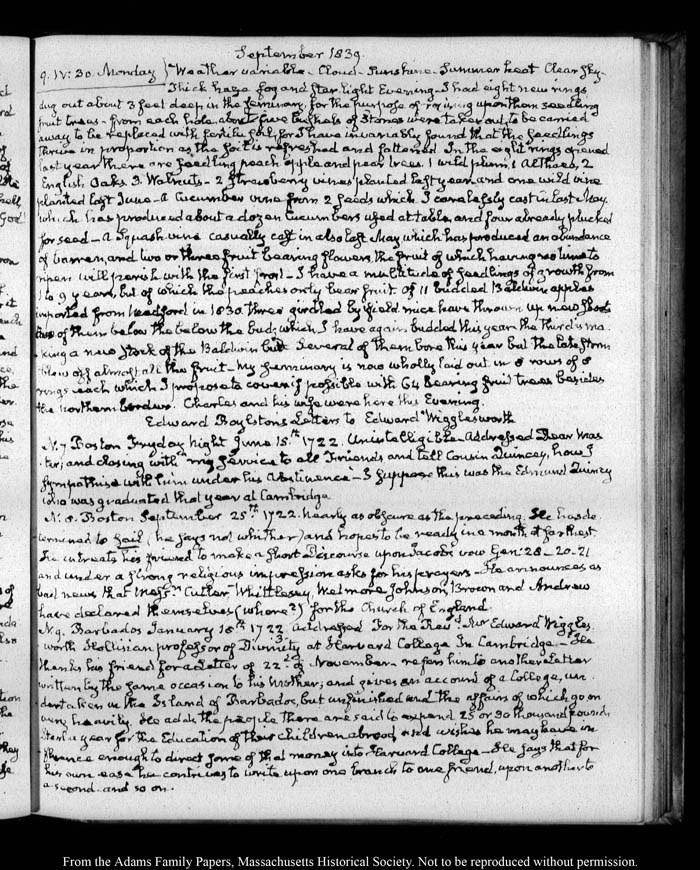 September 1839.
9. IV: 30. Monday Weather variable - Cloud - Sunshine - Summer heat Clear Sky -
Thick haze fog and Star light Evening - I had eight new rings
dug out about 3 feet deep in the seminary, for the purpose of raising upon them seedling
fruit trees - from each hole about five bushels of Stones were taken out, to be carried
away to be replaced with fertile soil, for I have invariably found that the seedlings
thrive in proportion as the soil is refreshed and fattened. In the eight rings opened
last year there are seedling peach apple and pear trees. 1 wild plum, 1 Althaea, 2
English Oaks 3 Walnuts - 2 strawberry vines planted last year and one wild vine
planted last June - a Cucumber vine from 2 seeds which I carelessly cast in last May.
which has produced about a dozen Cucumbers used at table, and four already plucked
for seed - a Squash vine casually cast in also last May which has produced an abundance
of barren, and two or three fruit bearing flowers, the fruit of which having no time to
ripen will perish with the first frost - I have a multitude of seedlings of growth from
1 to 9 years, but of which the peaches only bear fruit. Of 11 budded Baldwin apples
imported from Medford in 1830. three girdled by field mice have thrown up new shoots
two of them below the below the bud, which I have again budded this year the third is ma
king a new stock of the Baldwin bud Several of them bore this year but the late storm
blew off almost all the fruit - My seminary is now wholly laid out in 8 rows of 8
rings each which I propose to cover if possible with 64 bearing fruit trees besides
the northern borders. Charles and his wife were here this Evening.
Edward Boylston's Letters to Edward Wigglesworth
N. 7 Boston Fryday night June 15.th 1722. Unintelligible - Addressed Dear Mas
ter; and closing with "my service to all Friends and tell Cousin Quincey, how I
sympathise with him under his Abstinence" - I suppose this was the Edmund Quincy
who was graduated that year at Cambridge
N. 8. Boston September 25th. 1722. nearly as obscure as the preceding. He has de
termined to sail (he says not whither) and hopes to be ready in a month at farthest
He intreats his friend to make a short Discourse upon Jacobs vow Gen: 28 - 20-21
and under a strong religious impression asks for his prayers - He announces as
bad news that Mess.rs Cutler Whittlesey, Wetmore Johnson, Brown and Andrew
have declared themselves (where?) for the Church of England.
N. 9. Barbados January 18th. 1722/3. Addressed For the Rev.d Mr Edward Wiggles
worth Hollisian professor of Divinity at Harvard College In Cambridge - He
thanks his friend for a Letter of 22.d of November - refers him to another Letter
written by the same occasion to his Mother; and gives an account of a College, un
dertaken in the Island of Barbados, but unfinished and the affairs of which go on
very heavily. He adds the people there are said to expend 25 or 30 thousand pounds
Sterl. a year for the Education of their children abroad, and wishes he may have in
fluence enough to direct some of that money into Harvard College - He says that for
his own ease he contrives to write upon one branch to one friend, upon another to
a second. and so on.
From the Adams Family Papers, Massachusetts Historical Society. Not to be reproduced without permission.